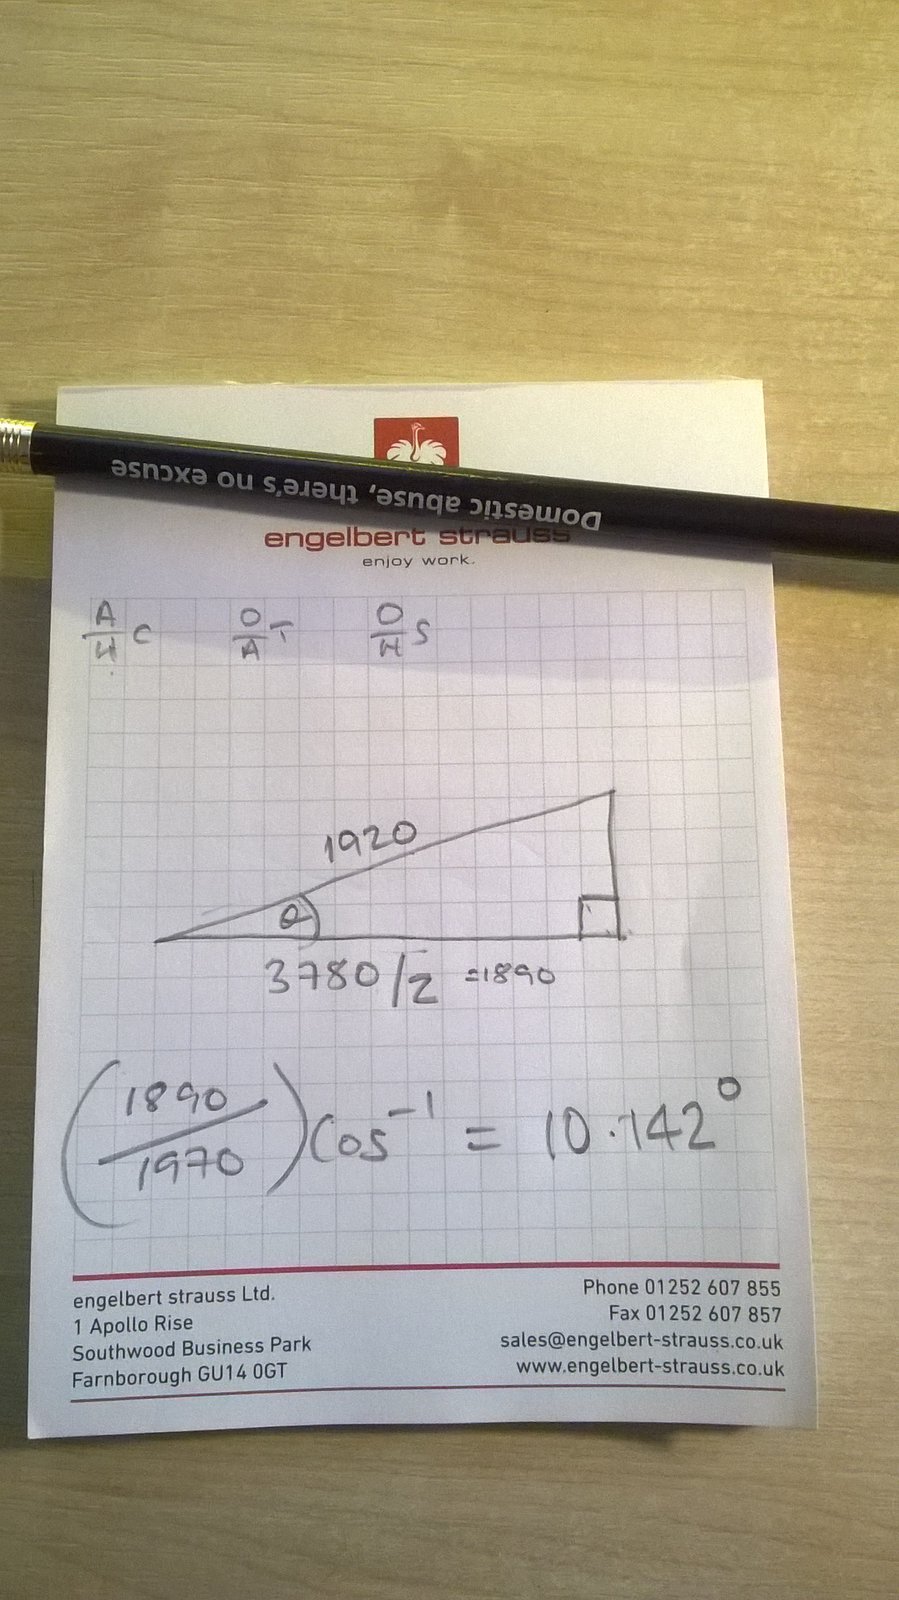 Domestic abuse, there's no excuse
engelbert strauss
enjoy work.
A/H C O/A T O/H S
1920
θ
3780/2 =1890
(1890/1970) Cos⁻¹ = 10.142°
engelbert strauss Ltd.
1 Apollo Rise
Southwood Business Park
Farnborough GU14 0GT
Phone 01252 607 855
Fax 01252 607 857
sales@engelbert-strauss.co.uk
www.engelbert-strauss.co.uk